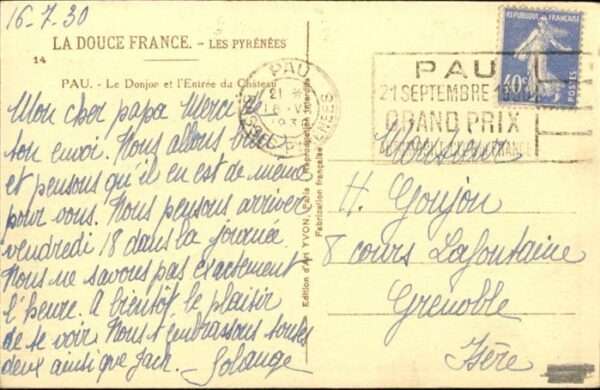 16-7.30
LA DOUCE FRANCE. - LES PYRÉNÉES
14
PAU. - Le Donjon et l'Entrée du Château
Mon cher papa Merci de
ton envoi. Nous allons bien
et pensons qu'il en est de même
pour vous. Nous pensons arriver
vendredi 18 dans la journée.
Nous ne savons pas exactement
l'heure. A bientôt le plaisir
de te voir. Nous t'embrassons toutes
deux ainsi que Jack. Solange
Edition d'Art YVON, Paris
Fabrication française
RÉPUBLIQUE FRANÇAISE
40c
POSTES
PAU
21
16
PYRENEES
PAU
21 SEPTEMBRE
GRAND PRIX
FRANCE
Monsieur
H. Goujon
8 cours Lafontaine
Grenoble
Isère